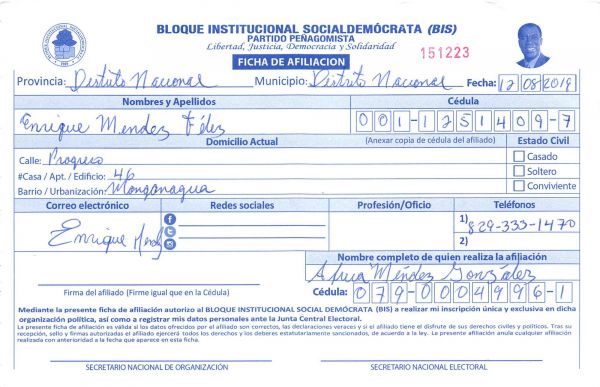 BLOQUE INSTITUCIONAL SOCIALDEMÓCRATA (BIS)
PARTIDO PEÑAGOMISTA
Libertad, Justicia, Democracia y Solidaridad
151223
FICHA DE AFILIACION
Provincia: Distrito Nacional Municipio: Distrito Nacional Fecha: 12/08/2019
Nombres y Apellidos Cédula
Enrique Mendez Féliz 001-1251409-7
Domicilio Actual (Anexar copia de cédula del afiliado) Estado Civil
Calle: Progreso Casado
#Casa / Apt. / Edificio: 46 Soltero
Barrio / Urbanización: Manganagua Conviviente
Correo electrónico Redes sociales Profesión/Oficio Teléfonos
1) 829-333-1470
Enrique Mendez 2)
Nombre completo de quien realiza la afiliación
Méndez González
Firma del afiliado (Firme igual que en la Cédula) Cédula: 079-0004996-1
Mediante la presente ficha de afiliación autorizo al BLOQUE INSTITUCIONAL SOCIAL DEMÓCRATA (BIS) a realizar mi inscripción única y exclusiva en dicha
organización política, así como a registrar mis datos personales ante la Junta Central Electoral.
La presente ficha de afiliación es válida si los datos ofrecidos por el afiliado son correctos, las declaraciones veraces y si el afiliado tiene el disfrute de sus derechos civiles y políticos. Tras su
recepción, sello y firmas autorizadas el afiliado ejercerá todos los derechos y los deberes estatutariamente sancionados, de acuerdo a la ley. La presente afiliación anula cualquier afiliación
realizada con anterioridad a la fecha que aparece en esta ficha.
SECRETARIO NACIONAL DE ORGANIZACIÓN SECRETARIO NACIONAL ELECTORAL